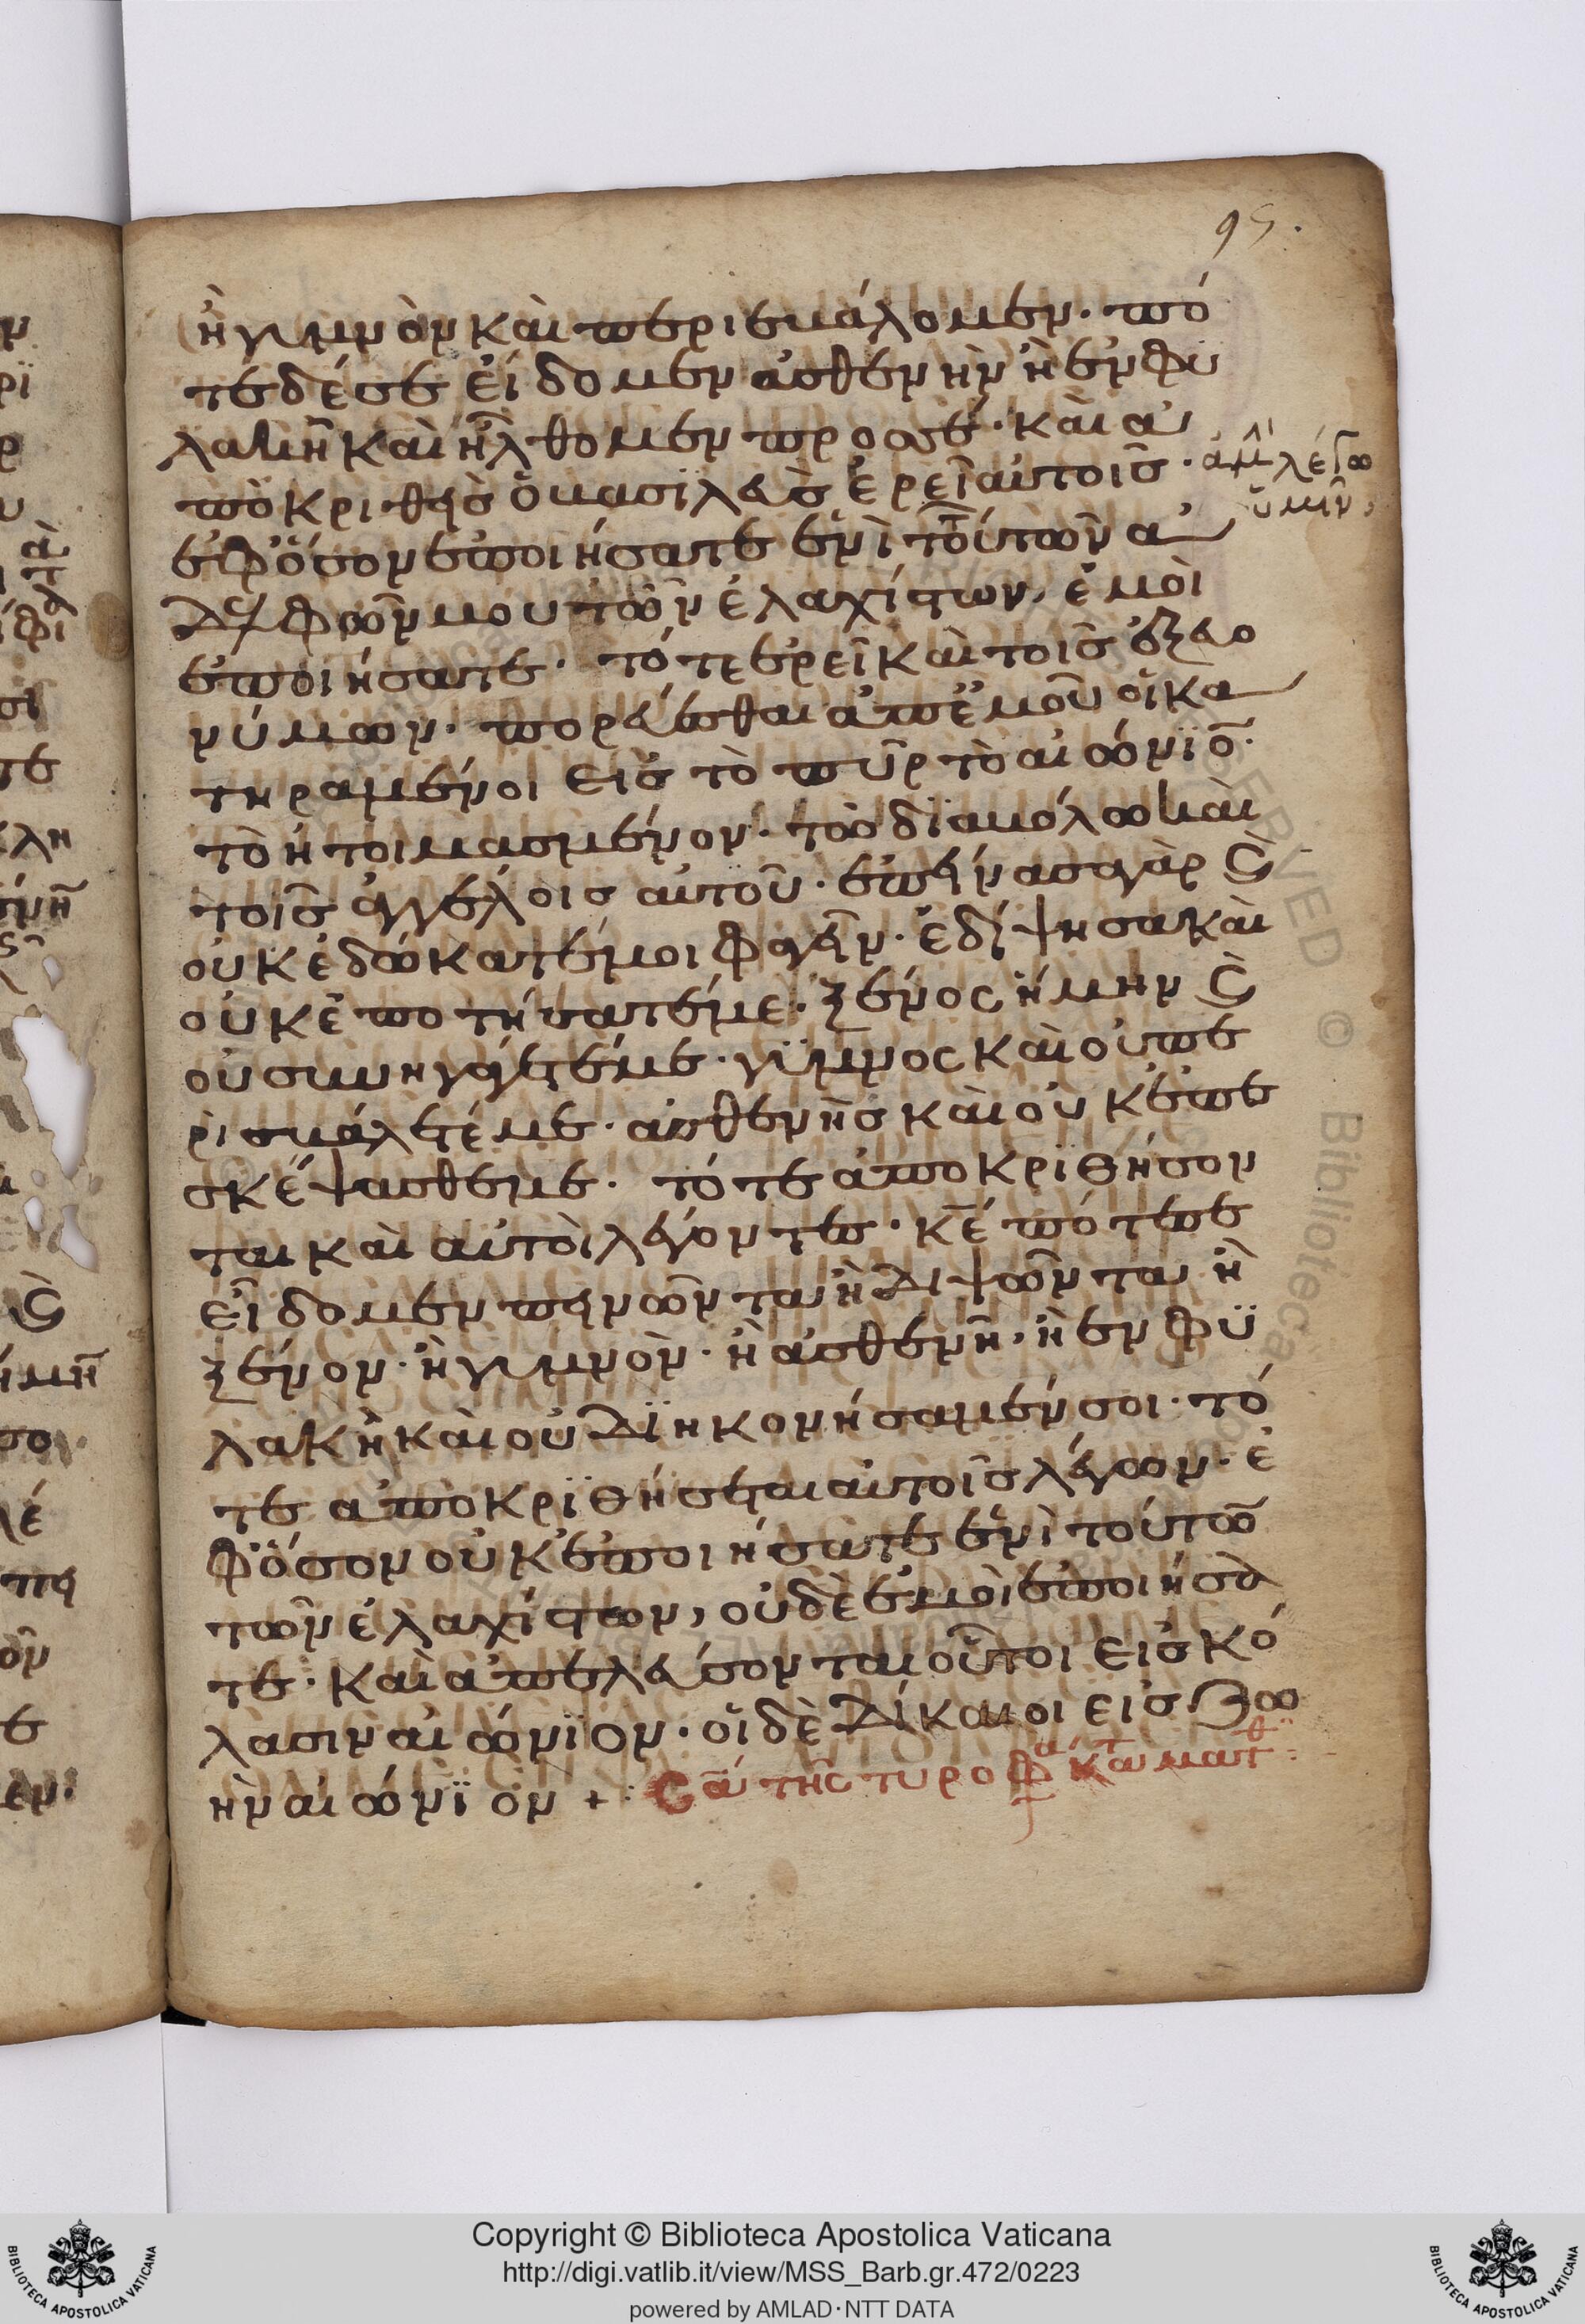 95.
ἢ γυμνὸν καὶ περιεβάλομεν· πό
τε δέ σε εἴδομεν ἀσθενῆν ἢ ἐν φυ
λακῆ καὶ ἤλθομεν πρός σε· καὶ ἀ
ποκριθεὶς ὁ βασιλεὺς ἐρεῖ αὐτοῖς· ἀμὴ λέγω
ὑμῖν,
ἐφ' ὅσον ἐποιήσατε ἑνὶ τούτων ἀ
δελφῶν μου τῶν ἐλαχίστων, ἐμοὶ
ἐποιήσατε· τότε ἐρεῖ καὶ τοῖς ἐξ εὐο
νύμων· πορεύεσθαι ἀπ' ἐμοῦ οἱ κα
τηραμένοι εἰς τὸ πῦρ τὸ αἰώνϊο̄·
τὸ ἡτοιμασμένον· τῶ διαβόλω καὶ
τοῖς ἀγγέλοις αὐτοῦ· ἐπείνασα γὰρ ϗ̀
οὐκ ἐδώκατέ μοι φαγεῖν· ἐδίψησα καὶ
οὐκ ἐποτήσατέ με· ξένος ἤμην ϗ̀
οὐ συνηγάγετέ με· γϋμνος καὶ οὐ πε
ριεβάλετέ με· ἀσθενὴς καὶ οὐκ ἐπε
σκέψασθέ με· τότε ἀποκριθήσον
ται καὶ αὐτοὶ λέγοντες· κ̄ε πότε σε
εἴδομεν πεινῶντα ἢ διψῶντα ἢ
ξένον· ἢ γυμνὸν· ἢ ἀσθενῆ, ἢ ἐν φϋ
λακῆ καὶ οὐ δϊηκονήσαμέν σοι· τό
τε ἀποκρϊθήσεται αὐτοῖς λέγων· ἐ
φ' ὅσον οὐκ ἐποιήσατε ἑνὶ τούτω̄
τῶν ἐλαχίστων, οὐδὲ ἐμοὶ ἐποιήσα
τε· καὶ ἀπελεύσονται οὗτοι εἰς κό
λασιν αἰώνϊον· οἱ δὲ δίκαιοι εἰς ζω
ὴν αἰώνϊον + Σα τῆς τυροφ κατ ματθ
Copyright © Biblioteca Apostolica Vaticana
http://digi.vatlib.it/view/MSS_Barb.gr.472/0223
powered by AMLAD·NTT DATA
BIBLIOTECA APOSTOLICA VATICANA
BIBLIOTECA APOSTOLICA VATICANA